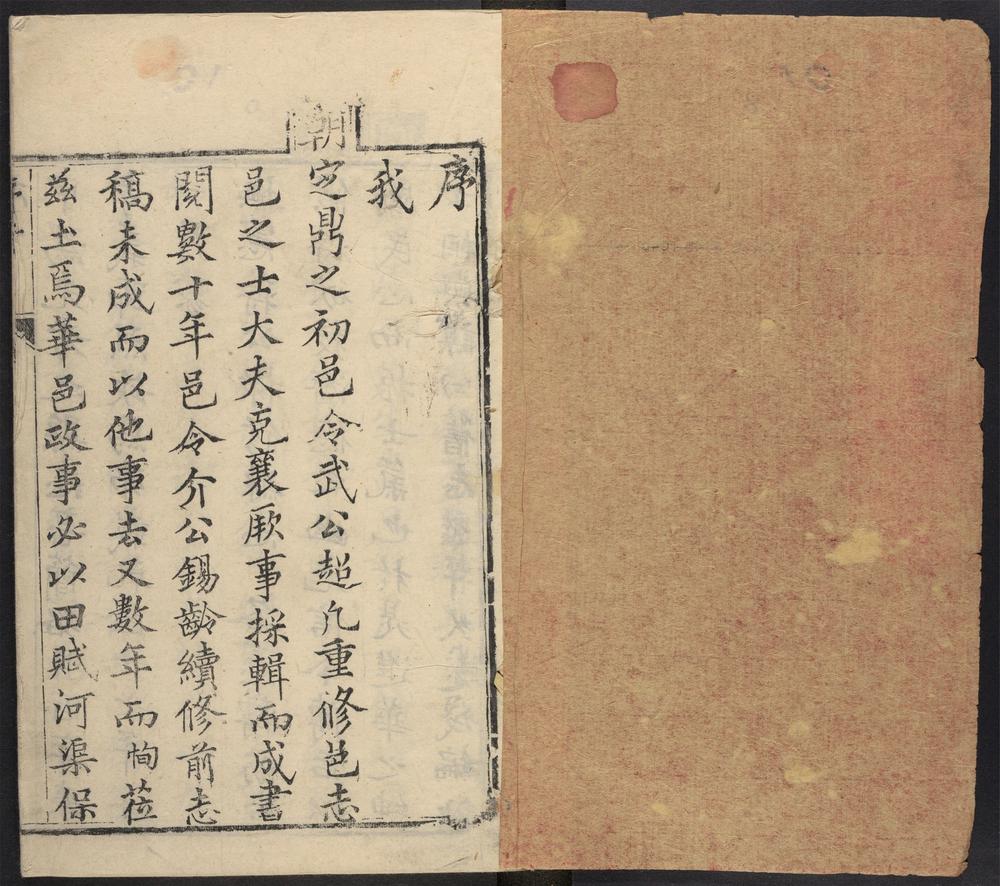 序
我
朝定鼎之初邑令武公超凡重修邑志
邑之士大夫克襄厥事採輯而成書
閱數十年邑令介公錫齡續修前志
稿未成而以他事去又數年而恂莅
茲土焉華邑政事必以田賦河渠保